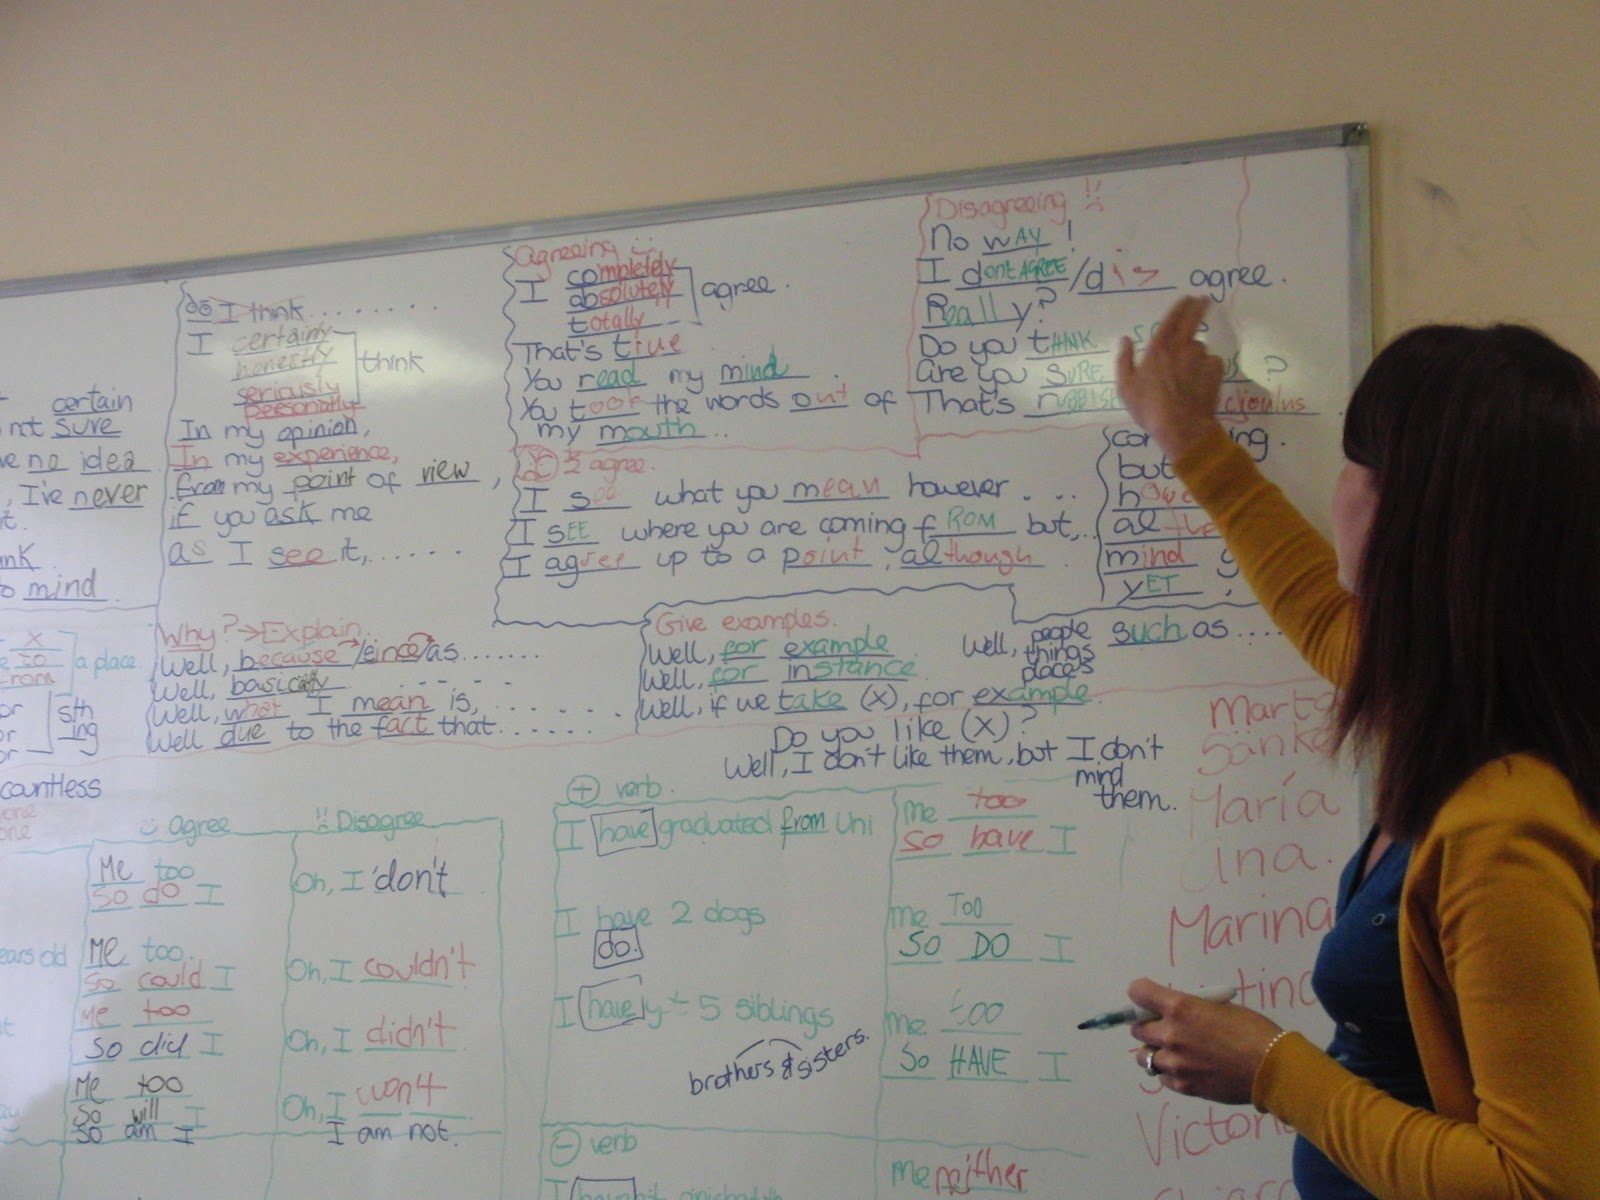 certain
not sure
no idea
, I've never
mind.
a place.
sth
ing
countless
I think.........
I certainly
honestly
seriously
personally
think
In my opinion,
In my experience,
from my point of view,
if you ask me
as I see it,......
Agreeing
I completely
absolutely
totally
agree.
That's true
You read my mind
You took the words out of
my mouth..
Disagreeing
No WAY!
I dont AGREE/dis agree.
Really?
Do you tHNK
are you SURE ?
That's
½ agree.
I see what you mean however....
I SEE where you are coming fROM but,..
I agree up to a point, although
but
mind
yET,
Why? → Explain
Well, because/since/as.......
Well, basically
Well, what I mean is,......
Well due to the fact that.......
Give examples.
Well, for example
Well, for instance
Well, if we take (X), for example.
Well, people
things
places
such as.....
Do you like (X)?
Well, I don't like them, but I don't
mind
them.
agree
Disagree
Me too
So do I
Oh, I don't
ears old
Me too
So could I
Oh, I couldn't
Me too
So did I
Oh, I didn't
Me too
So will I
So am I
Oh, I won't
I am not.
+ verb.
I have graduated from Uni
me too
so have I
I have 2 dogs
do.
me TOO
SO DO I
I have 5 siblings
brothers & sisters.
me too
So HAVE I
- verb
me neither
Marta
Sänke
María
ina.
Marina
Victor